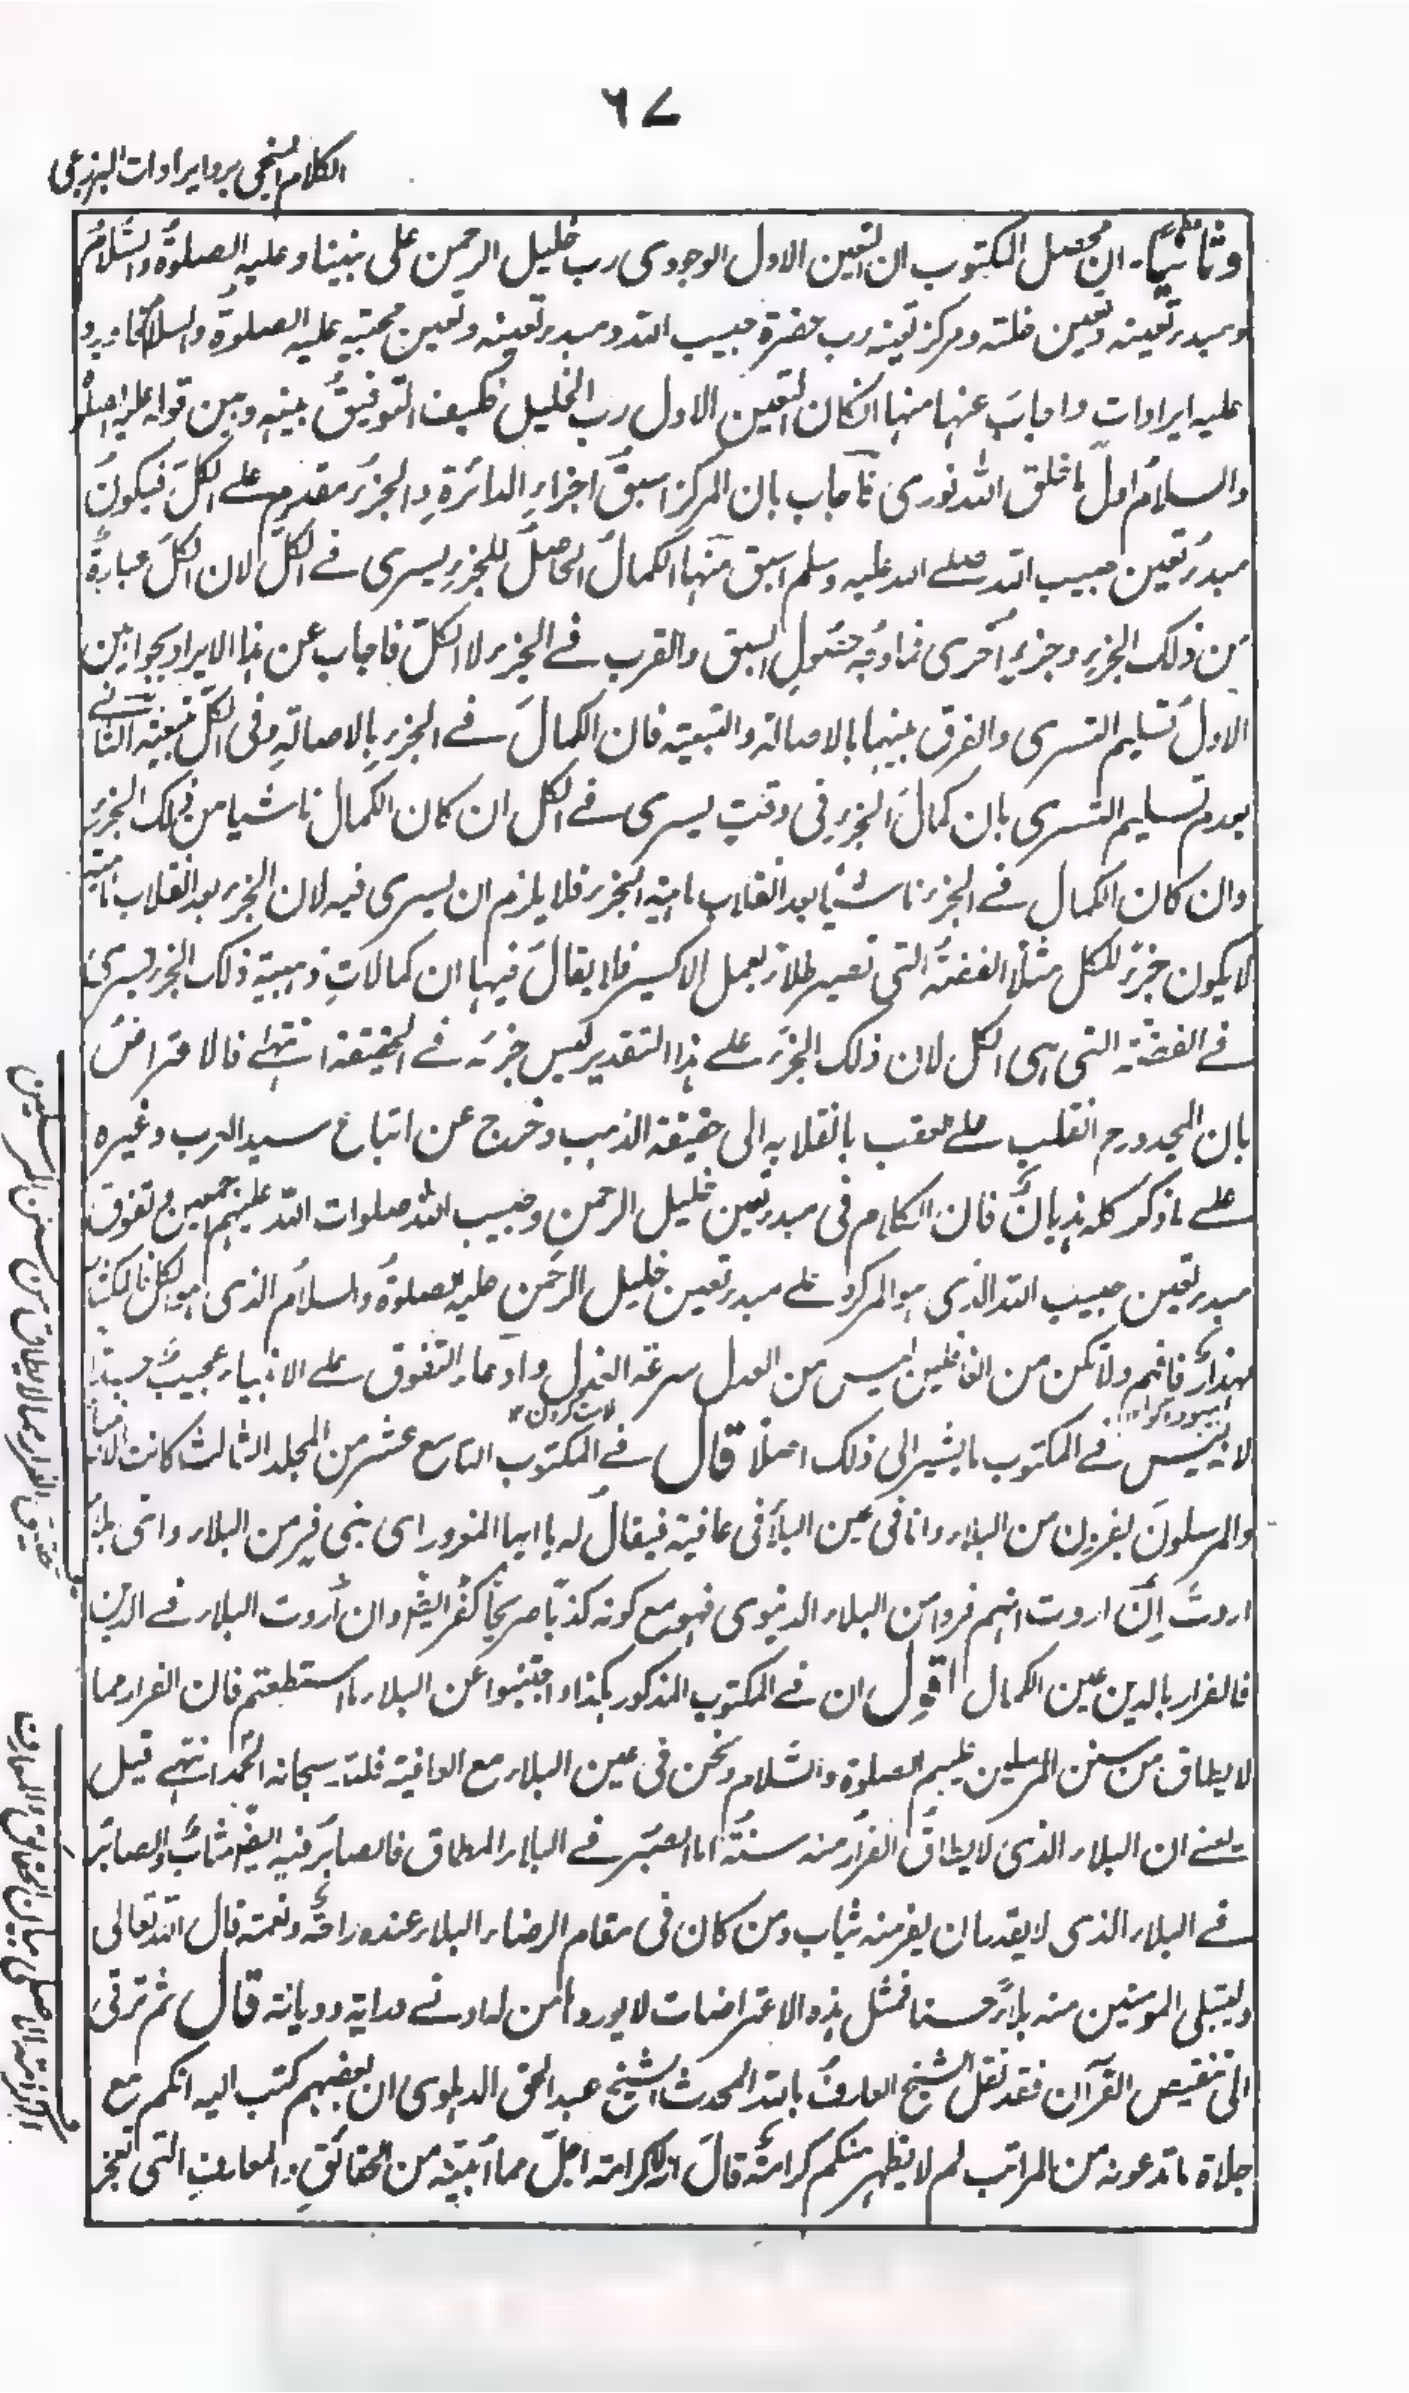 ٦٧
الكلام المنجي برد ايرادات البرزنجي
وثانيًا ان محصل المكتوب ان التعين الاول الوجودى رب خليل الرحمن على نبينا وعليه الصلوة والسلام
ومبدء تعينه وتعين خلته ومركز تعينه رب حضرة حبيب الله ومبدء تعينه وتعين محبته عليه الصلوة والسلام
عليه ايرادات واجاب عنها منها ان كان التعين الاول رب الخليل فكيف التوفيق بينه وبين قوله عليه الصلوة
والسلام اول ما خلق الله نورى فاجاب بان المركز اسبق اجزاء الدائرة والجزء مقدم على الكل فيكون
مبدء تعين حبيب الله صلے الله عليه وسلم اسبق منها الكمال الحاصل للجزء يسرى فے الكل لان الكل عبارة
من ذلك الجزء وجزء اخرى فما وجه حصول السبق والقرب فے الجزء لا الكل فاجاب عن هذا الايراد بجوابين
الاول تسليم التسرى والفرق بينهما بالاصالة والتبعية فان الكمال فے الجزء بالاصالة وفى الكل تبعية الثانے
بعدم تسليم التسرى بان كمال الجزء فى وقت يسرى فے الكل ان كان الكمال ناشيا من ذلك الجزء
وان كان الكمال فے الجزء ناشيًا بعد انقلاب ماهية الجزء فلا يلزم ان يسرى فيه لان الجزء بعد انقلاب ماهيته
لا يكون جزءً للكل مثلًا الفضة التى تصير طلاءً بعمل الاكسير فلا يقال فيها ان كمالات ذهبية ذلك الجزء يسرى
فے الفضة التى هى الكل لان ذلك الجزء علے هذا التقدير ليس جزئه فے الحقيقة انتهے فالاعتراض
بان المجدد رح انقلب علے عقب بانقلابه الى حقيقة الذهب وخرج عن اتباع سيد العرب وغيره
علے ما ذكر كله هذيان فان الكلام فى مبدء تعين خليل الرحمن وحبيب الله صلوات الله عليهم اجمعين وتفوق
مبدء تعين حبيب الله الذى هو المركز علے مبدء تعين خليل الرحمن عليه الصلوة والسلام الذى هو الكل
فافهم ولا تكن من الغافلين ليس من العدل سرعة العذل وادعاء التفوق علے الانبياء عجيب
لا ليس فے المكتوب ما يشير الى ذلك اصلًا قال فے المكتوب التاسع عشر من المجلد الثالث كانت الانبياء
والمرسلون يفرون من البلاء وانا فى عين البلاء فى عافية فيقال له يا ايها المغرور اى نبى فر من البلاء واى بلاء
اردت ان اردت انهم فروا من البلاء الدنيوى فهو مع كونه كذبًا صريحًا كفر ايضًا وان اردت البلاء فے الدين
فالفرار بالدين عين الكمال اقول ان فے المكتوب المذكور هكذا واجتنبوا عن البلاء ما استطعتم فان الفرار مما
لا يطاق من سنن المرسلين عليهم الصلوة والسلام ونحن فى عين البلاء مع العافية فللّه سبحانه الحمد انتهے قيل
يعنے ان البلاء الذى لا يطاق الفرار منه سنة اما الصبر فے البلاء المطاق فالصابر فيه ايضًا مثاب والصابر
فے البلاء الذى لا يقدر ان يفر منه مثاب ومن كان فى مقام الرضاء البلاء عنده راحة ونعمة قال الله تعالى
وليبلى المومنين منه بلاءً حسنا فمثل هذه الاعتراضات لا يورد من له ادنے دراية وديانة قال ثم ترقى
الى تنقيص القرآن فقد نقل الشيخ العارف بالله المحدث الشيخ عبد الحق الدهلوى ان بعضهم كتب اليه انكم مع
جلالة ما تدعونه من المراتب لم لا يظهر منكم كرامة قال اى كرامة اجل مما ابنته من الحقائق والمعارف التى تعجز
تحقيق الفرار مما لا يطاق من سنن المرسلين